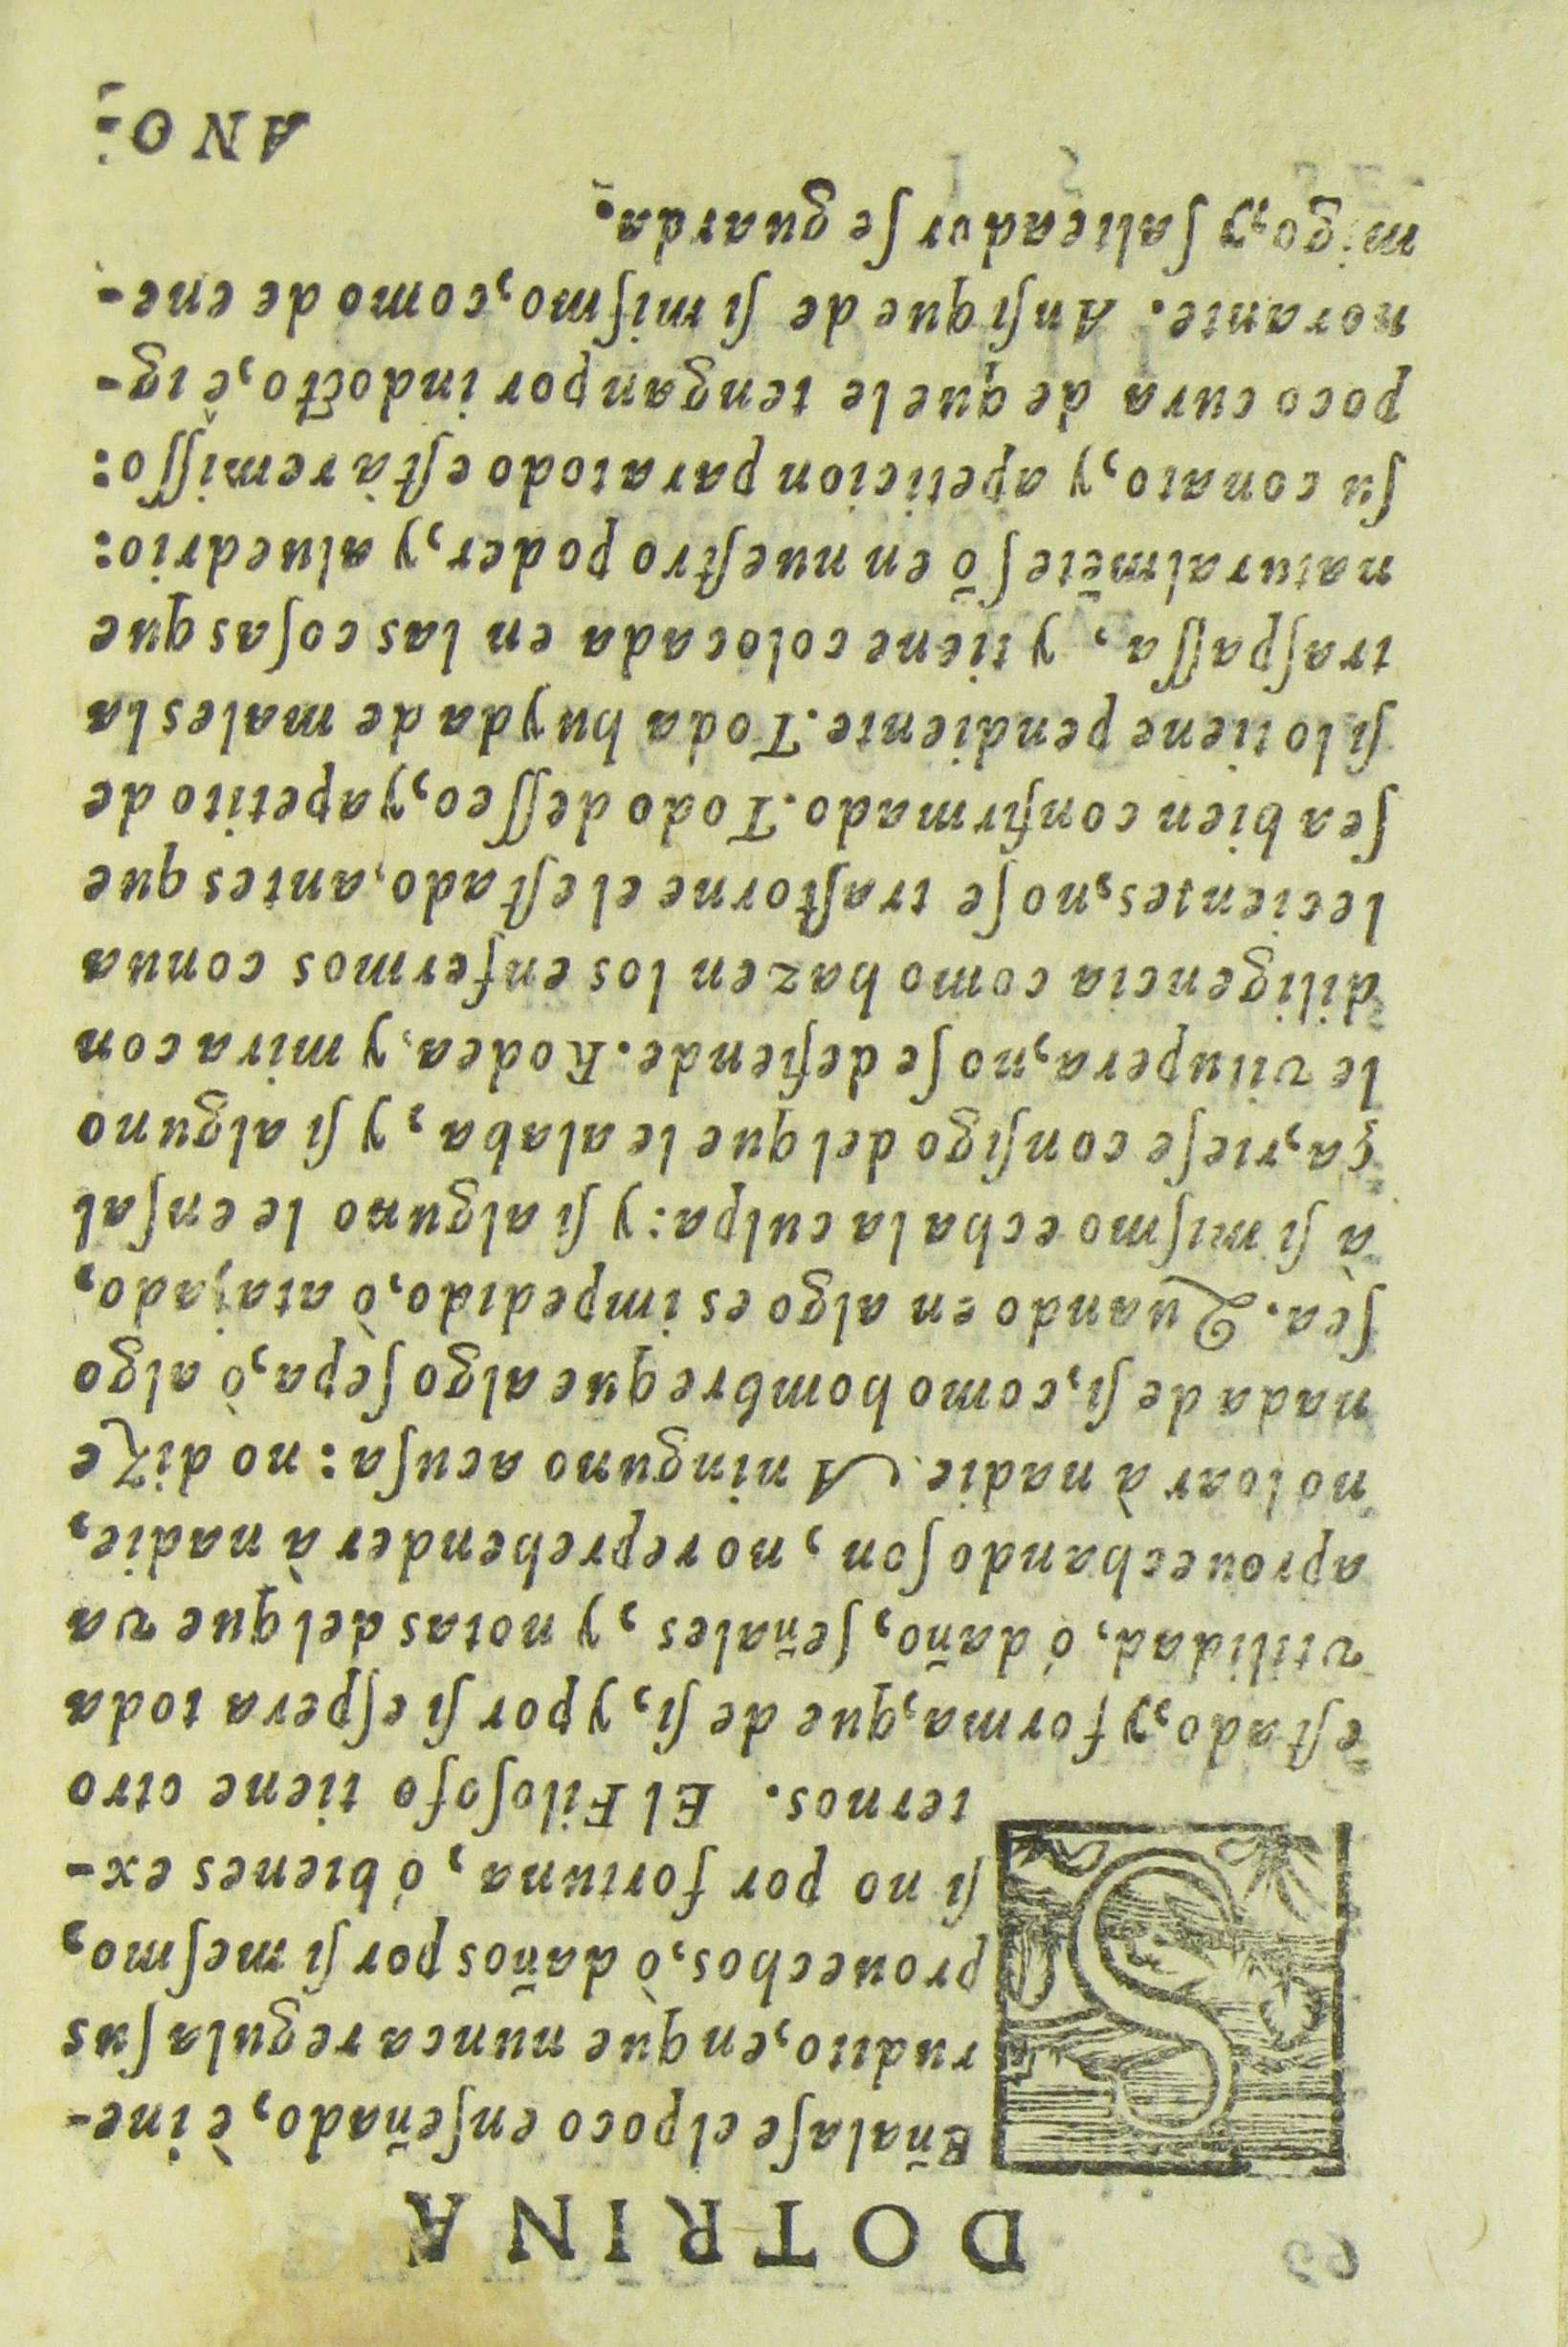 DOTRINA
SEñalaſe el poco enſeñado, è ine-
rudito, en què nunca regula ſus
prouechos, ò daños por ſi meſmo,
ſi no por fortuna, ó bienes ex-
ternos. El Filoſofo tiene otro
eſtado, y forma, que de ſi, y por ſi eſpera toda
vtilidad, ó daño, ſeñales, y notas del que va
aprouechando ſon, no reprehender à nadie,
no loar à nadie. A ninguno acuſa: no dize
nada de ſi, como hombre que algo ſèpa, ò algo
ſea. Quando en algo es impedido, ò atajado,
à ſi miſmo echa la culpa: y ſi alguno le enſal
ça, rieſe conſigo del que le alaba, y ſi alguno
le vitupera, no ſe defiende. Rodea, y mira con
diligencia como hazen los enfermos conua
lecientes, no ſe traſtorne el eſtado, antes que
ſea bien confirmado. Todo deſſeo, y apetito de
ſi lo tiene pendiente. Toda huyda de males la
traſpaſſa, y tiene colocada en las coſas que
naturalmẽte ſõ en nueſtro poder, y aluedrio:
ſu conato, y apeticion para todo eſtà remiſſo:
poco cura de que le tengan por indocto, è ig-
norante. Anſi que de ſi miſmo, como de ene-
migo, y ſalteador ſe guarda.
ANO-